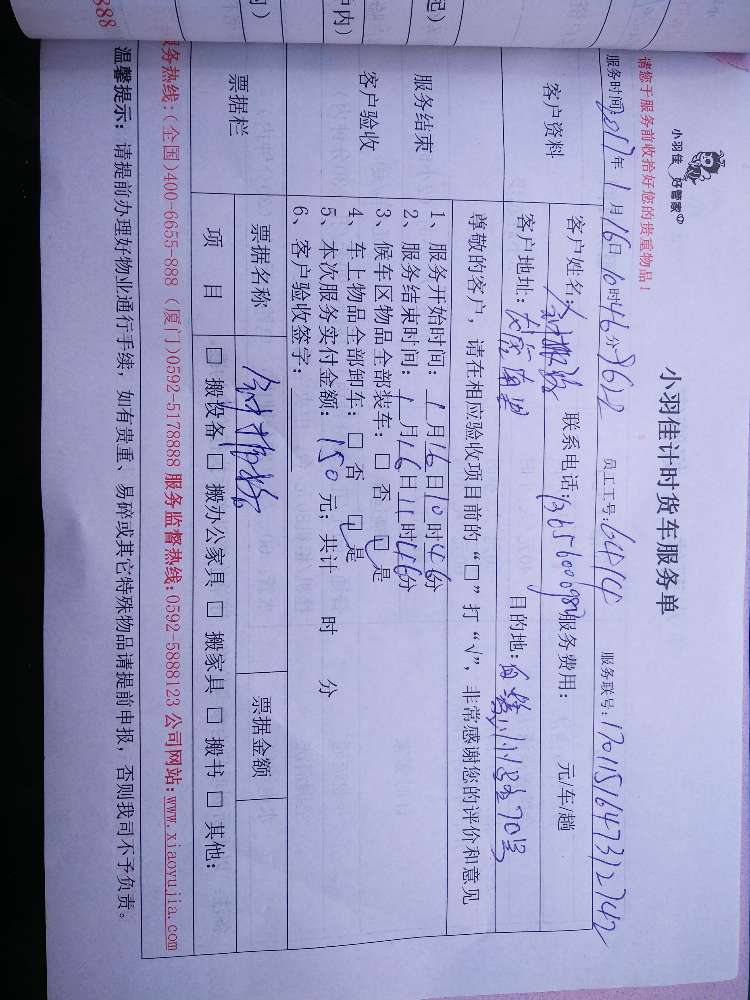 小羽佳 好管家
小羽佳计时货车服务单
请您于服务前收拾好您的贵重物品！
服务时间: 2017年 1月 16日 10时 46分 员工工号: 服务联号: 1701151647312742
客户资料
客户姓名: 联系电话: 服务费用: 元/车/趟
客户地址: 目的地:
尊敬的客户，请在相应验收项目前的“□”打“√”，非常感谢您的评价和意见
服务结束
客户验收
1、服务开始时间: 1月16日10时46分
2、服务结束时间: 1月16日11时46分
3、候车区物品全部装车: □ 否 □ 是
4、车上物品全部卸车: □ 否 □ 是
5、本次服务实付金额: 150 元; 共计 时 分
6、客户验收签字:
票据栏
票据名称 票据金额
项 目 □ 搬设备 □ 搬办公家具 □ 搬家具 □ 搬书 □ 其他:
服务热线:(全国)400-6655-888 (厦门)0592-5178888 服务监督热线:0592-5888123 公司网站:www.xiaoyujia.com
温馨提示: 请提前办理好物业通行手续，如有贵重、易碎或其它特殊物品请提前申报，否则我司不予负责。